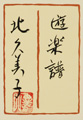 遊楽譜
北久美子